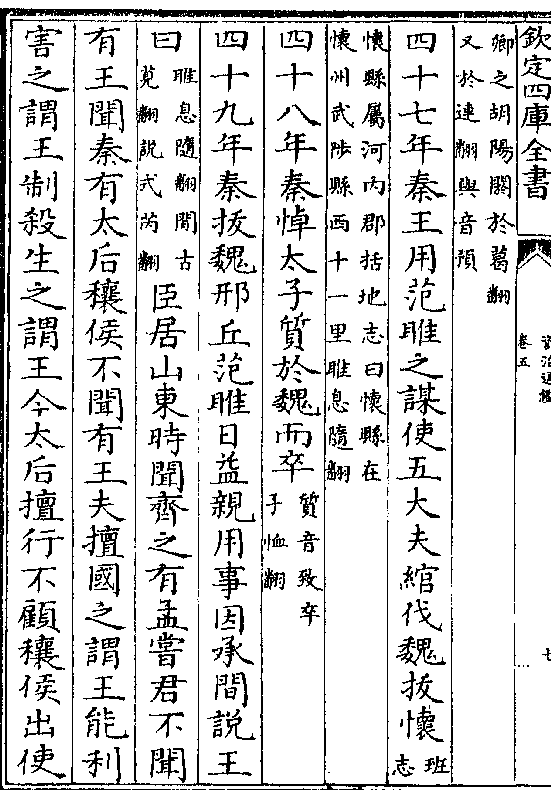 欽定四庫全書
資治通鑑
卷五
七
卿之胡陽閼於葛翻
又於連翻與音預
四十七年秦王用范睢之謀使五大夫綰伐魏拔懷班志
懷縣屬河內郡括地志曰懷縣在
懷州武陟縣西十一里睢息隨翻
四十八年秦悼太子質於魏而卒質音致卒子恤翻
四十九年秦拔魏邢丘范睢日益親用事因承間說王
曰睢息隨翻間古莧翻說式芮翻臣居山東時聞齊之有孟嘗君不聞
有王聞秦有太后穰侯不聞有王夫擅國之謂王能利
害之謂王制殺生之謂王今太后擅行不顧穰侯出使